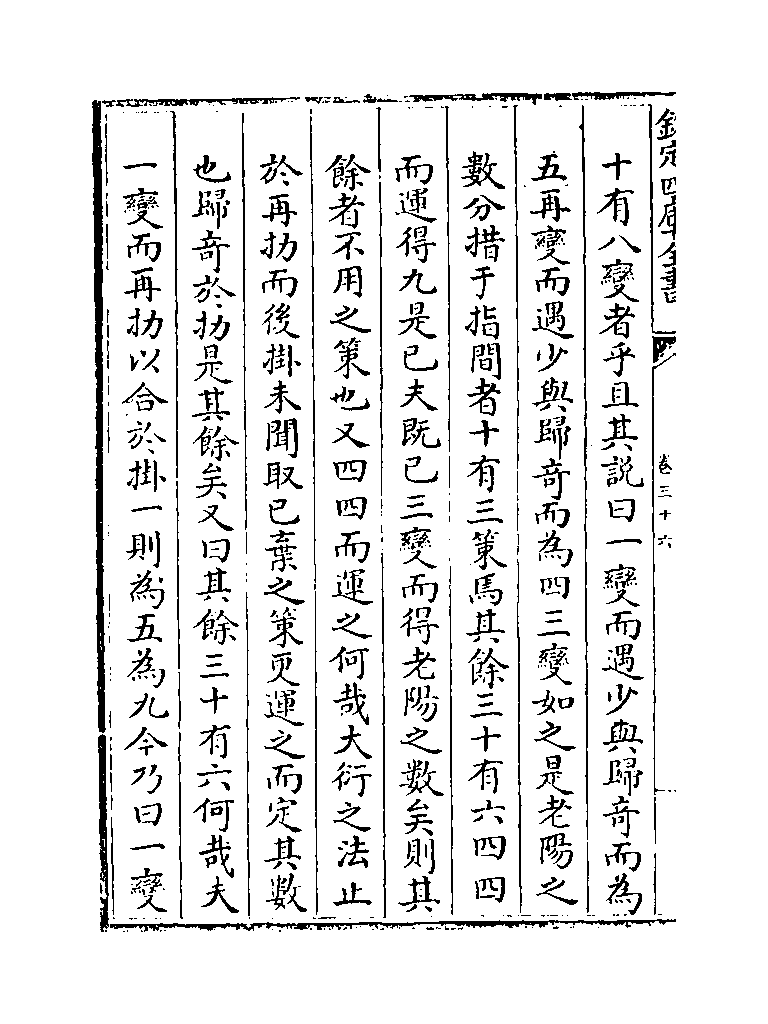 欽定四庫全書
卷三十六
十有八變者乎且其説曰一變而遇少與歸奇而為
五再變而遇少與歸奇而為四三變如之是老陽之
數分措于指間者十有三策焉其餘三十有六四四
而運得九是已夫既已三變而得老陽之數矣則其
餘者不用之策也又四四而運之何哉大衍之法止
於再扐而後掛未聞取已棄之策更運之而定其數
也歸奇於扐是其餘矣又曰其餘三十有六何哉夫
一變而再扐以合於掛一則為五為九今乃曰一變